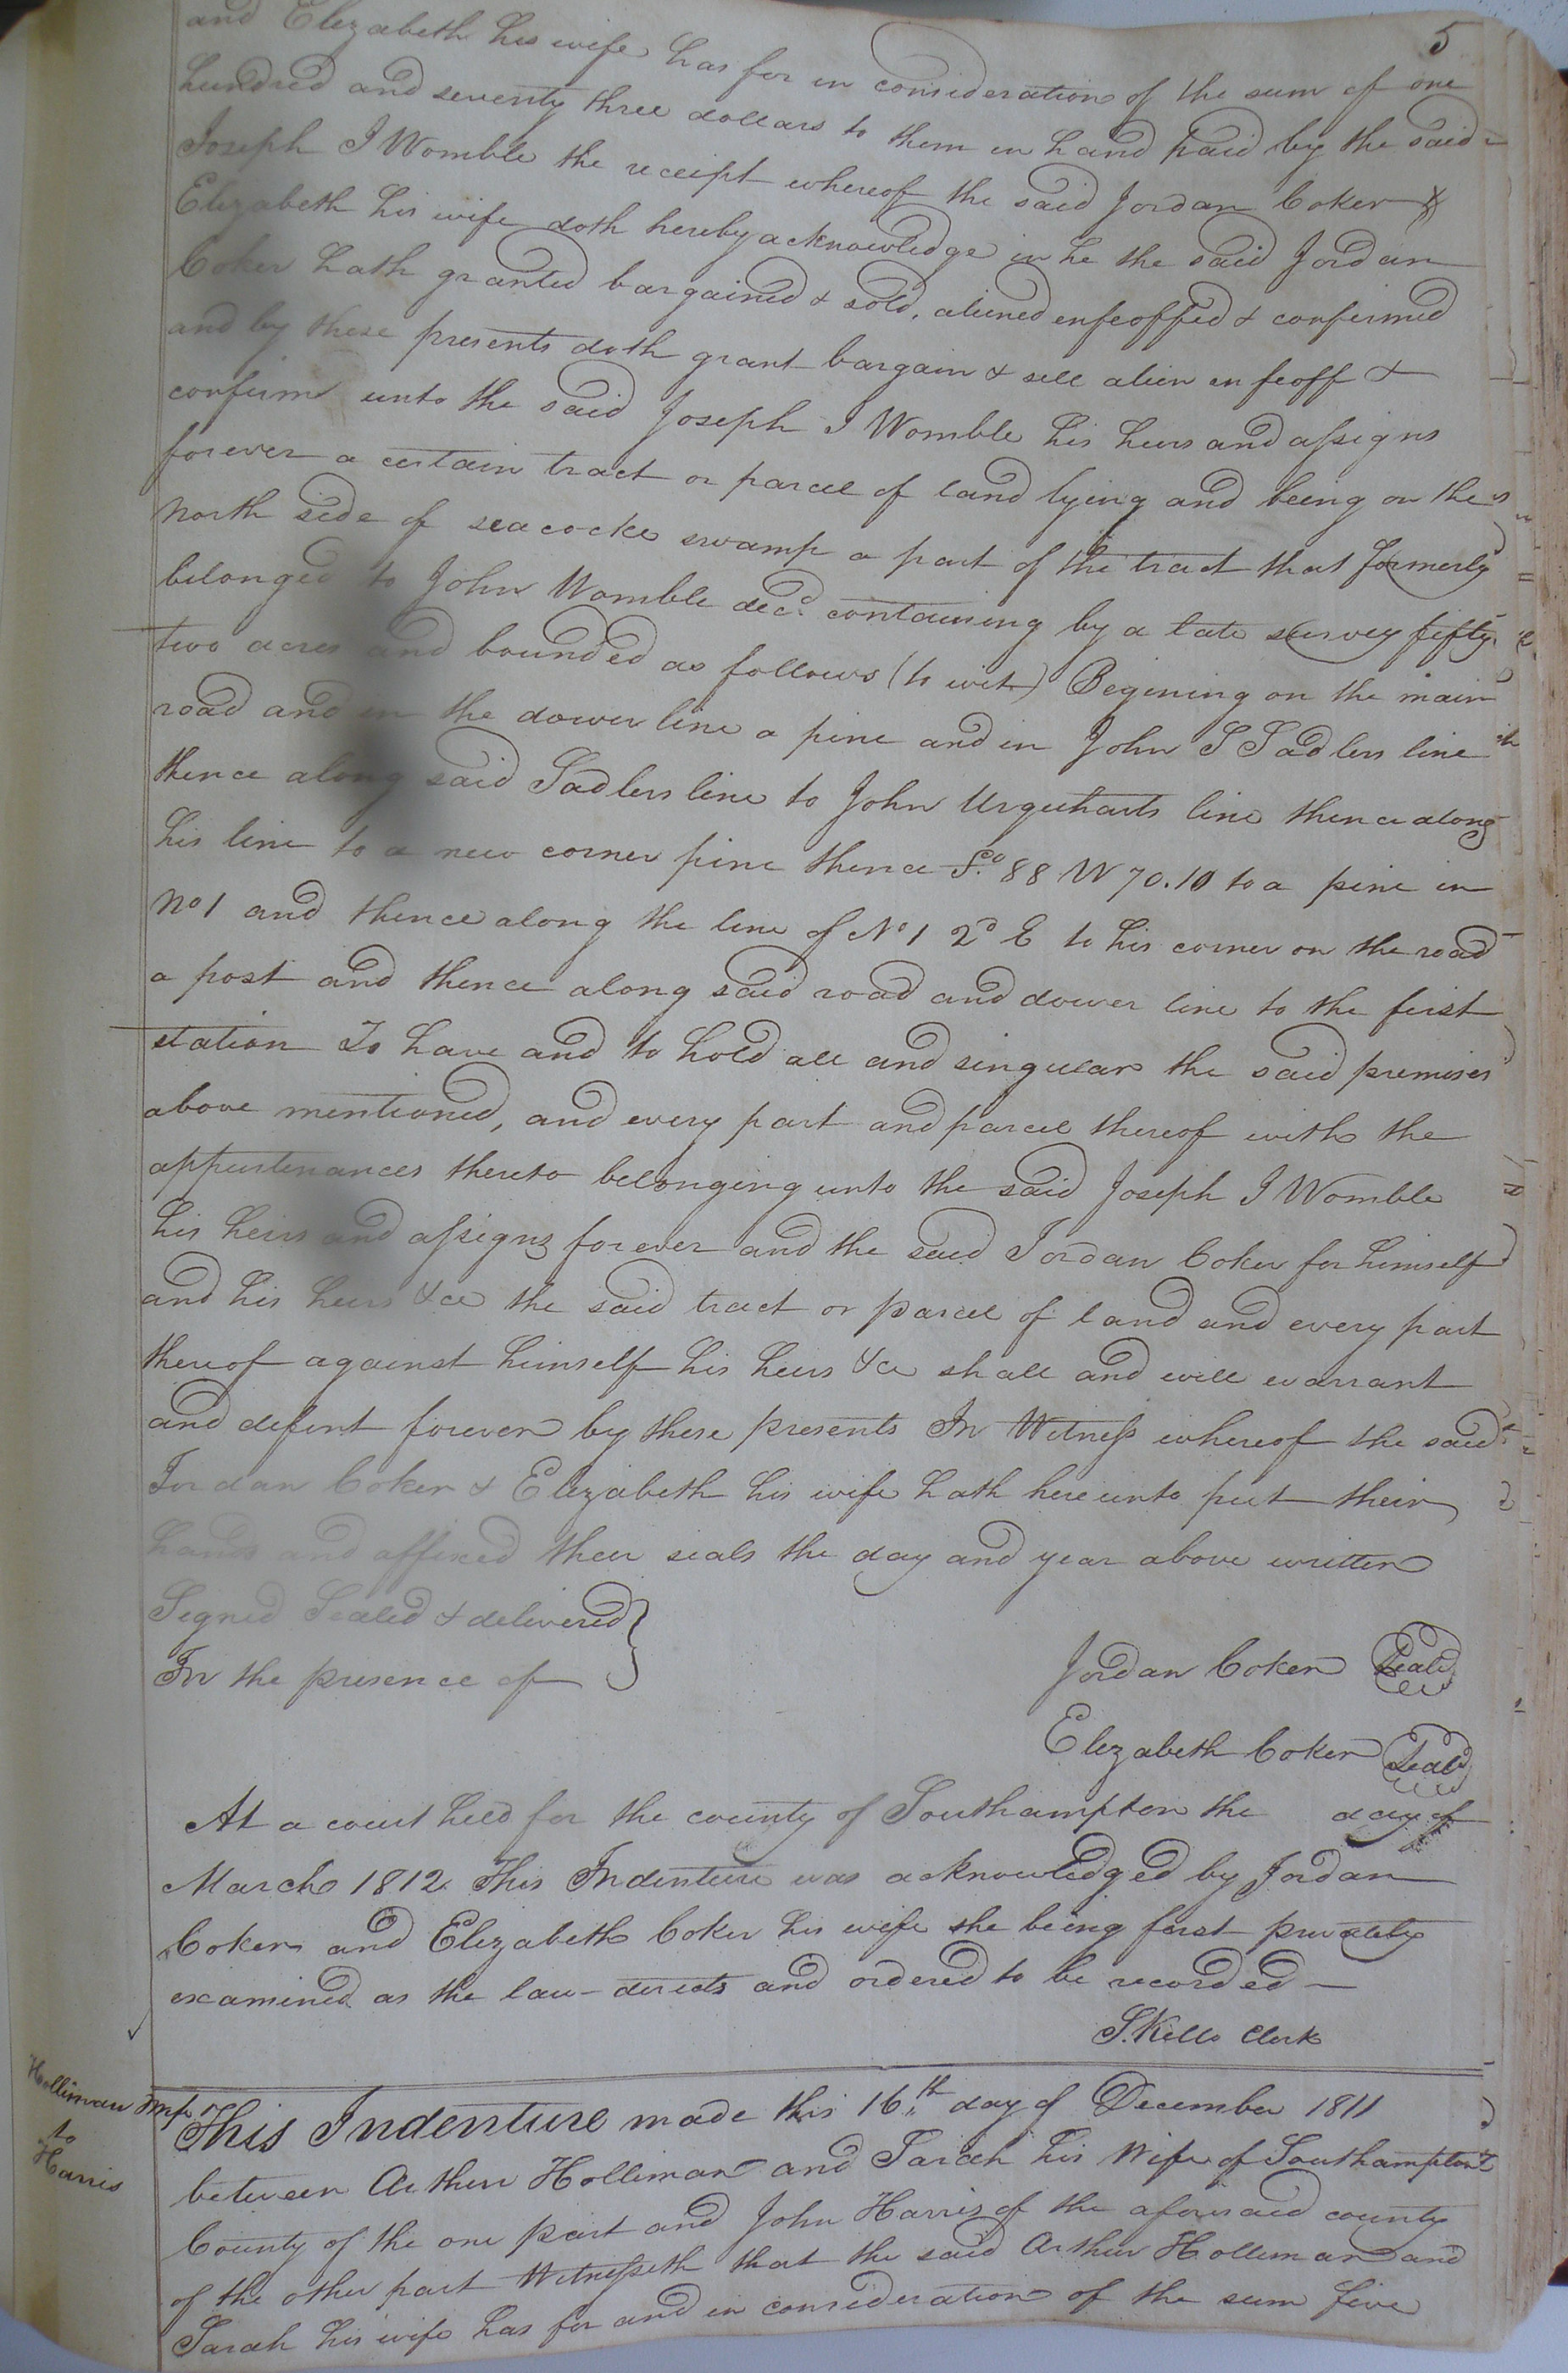 5
and Elizabeth his wife has for in consideration of the sum of one
hundred and seventy three dollars to them in hand paid by the said
Joseph J Womble the receipt whereof the said Jordan Coker &
Elizabeth his wife doth hereby acknowledge in he the said Jordan
Coker hath granted bargained & sold, aliened enfeoffed & confirmed
and by these presents doth grant bargain & sell alien enfeoff &
confirm unto the said Joseph J Womble his heirs and assigns
forever a certain tract or parcel of land lying and being on the
North side of seacocke swamp a part of the tract that formerly
belonged to John Womble decd. containing by a late survey fifty
two acres and bounded as follows (to wit) Begining on the main
road and in the dower line a pine and in John S Sadlers line
thence along said Sadlers line to John Urquharts line thence along
his line to a new corner pine thence So. 88 W 70.10 to a pine in
No 1 and thence along the line of No 1 2° E to his corner on the road
a post and thence along said road and dower line to the first
station To have and to hold all and singular the said premises
above mentioned, and every part and parcel thereof with the
appurtenances thereto belonging unto the said Joseph J Womble
his heirs and assigns forever and the said Jordan Coker for himself
and his heirs &ce the said tract or parcel of land and every part
thereof against himself his heirs &ce shall and will warrant
and defent forever by these presents In Witness whereof the said
Jordan Coker & Elizabeth his wife hath hereunto put their
hands and affixed their seals the day and year above written
Signed Sealed & delivered }
In the presence of
Jordan Coker Seal
Elizabeth Coker Seal
At a court held for the county of Southampton the day of
March 1812. This Indenture was acknowledged by Jordan
Coker and Elizabeth Coker his wife she being first privately
examined as the law directs and ordered to be recorded
S. Kello Clerk
Holliman
to
Harris
This Indenture made this 16th day of December 1811
between Arthur Holliman and Sarah his Wife of Southampton
County of the one part and John Harris of the aforesaid county
of the other part Witnesseth that the said Arthur Holliman and
Sarah his wife has for and in consideration of the sum five